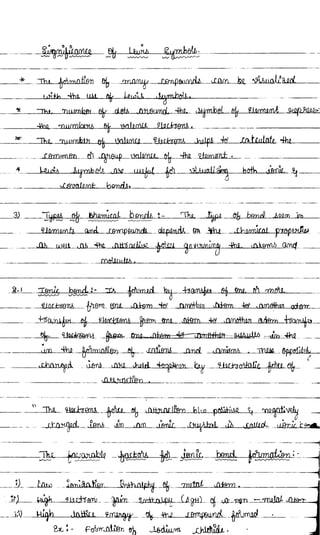 Significance of Lewis Symbols.
* The formation of many compounds can be visualized
with the use of Lewis symbols.
* The number of dots around the symbol of element
the numbers of valence electrons.
* The number of valence electrons helps to calculate the
common or group valence of the element.
* Lewis symbols are useful for visualising both ionic &
covalent bonds.
3) Types of chemical bonds :- The type of bond seen in
elements and compounds depends on the chemical properties
as well as the attractive forces governing the atoms and
molecules.
3.1 Ionic bond :- Is formed by transfer of one or more
electrons from one atom to another atom to another atom
transfer of electrons from one atom to another atom transfer
of electrons from one atom to another results in the
in the formation of cations and anions. These oppositely
charged ions are held together by electrostatic force of
attraction.
" The electrons force of attraction b/w positive & negatively
charged ions in an ionic crystal is called ionic bond
The favourable factors for ionic bond formation :-
i) Low Ionisation Enthalpy of metal atom.
ii) High electron gain Enthalpy (ΔgH) of a non-metal atom
iii) High lattice Energy of the compound formed.
Ex :- Formation of sodium chloride.